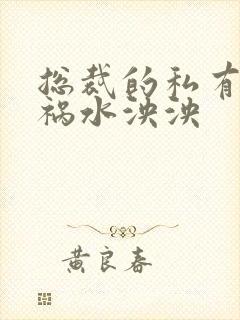 总裁的私有
祸水泱泱
黄良春